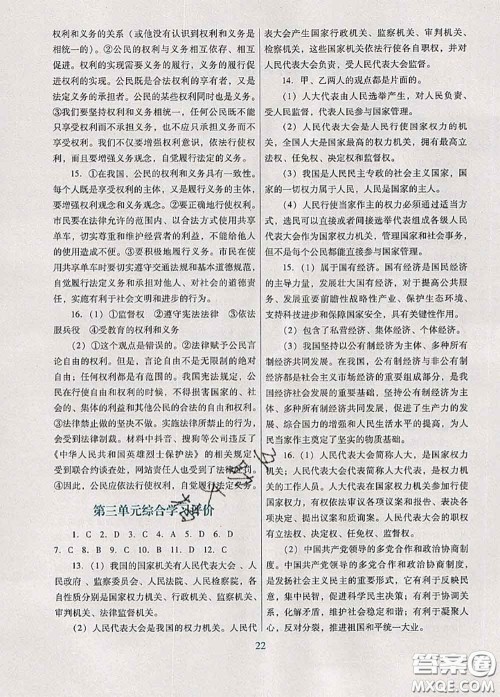 权利和义务的关系（或他没有认识到权利和义务是
相统一的）。②公民的权利与义务相互依存、相互
促进。权利的实现需要义务的履行，义务的履行
促进权利的实现。公民既是合法权利的享有者，又是
法定义务的承担者。公民的某些权利同时也是义务。
③我们要坚持权利和义务相统一，任何公民既不能
只享受权利而不承担义务，也不应只承担义务而不
享受权利。我们不仅要增强权利观念，依法行使权
利，而且要增强义务观念，自觉履行法定义务。
15. ①在我国，公民的权利和义务具有一致性。
每个人既是享受权利的主体，又是履行义务的主体，
要增强权利观念和义务观念。②要正确地行使权利。
市民要在法律允许的范围内、以合法方式使用共享
单车，切实尊重和维护经营者的利益，不能给他人
的使用造成不便。③要积极地履行义务。市民在使
用共享单车时要切实遵守交通法规及相关规定，自
觉履行法定义务和基本道德规范，尽到自身的社会
责任，做有利于社会文明和进步的行为。
16. （1）①监督权 ②遵守宪法法律 ③依法
服兵役 ④受教育的权利和义务
（2）①这个观点是错误的。②法律赋予公民言
论自由的权利。自由不是为所欲为、无限制的绝对
自由，任何权利都是有范围的。我国宪法规定，公
民在行使自由和权利的时候，不得损害国家的、社
会的、集体的利益和其他公民的合法的自由和权利。
③法律禁止做的坚决不做。实施法律所禁止的行为，
会受到法律制裁。材料中抖音、搜狗等公司违反了
《中华人民共和国英雄烈士保护法》的相关规定，
受到联合约谈在处，网站责任人也受到了法律
④因此，公民应依法行使权利，自觉履行法定义务。
第三单元综合学习评价
1. C 2. D 3. C 4. B 5. D 6. D
7. C 8. B 9. D 10. D 11. C 12. C
13. （1）我国的国家机关有人民代表大会、人
民政府、监察委员会、人民法院、人民检察院，各
自性质分别是国家权力机关、行政机关、监察机关、
审判机关、法律监督机关。
（2）人民代表大会是我国的权力机关。人民代
表大会产生国家行政机关、监察机关、审判机关、
检察机关，这些国家机关依法行使各自职权，并对
人民代表大会负责，受人民代表大会监督。
14. 甲、乙两人的观点都是片面的。
（1）人大代表由人民选举产生，对人民负责、
受人民监督，代表人民参与国家管理。
（2）人民代表大会是人民行使国家权力的机关，
全国人大是国家最高权力机关，拥有最高立
法权、任免权、决定权和监督权。
（3）我国是人民民主专政的社会主义国家，国
家的一切权力属于人民，人民是国家的主人。
（4）人民行使当家作主的权力必须通过适当方
式，选民可以直接或者间接选举代表组成各级人民
代表大会作为国家权力机关，管理国家和社会事务，
但不是每个公民都能直接参与国家管理。
15. （1）属于国有经济。国有经济是国民经济
的主导力量，发展壮大国有经济，对于提高公共服
务、发展重要前瞻性战略性产业、保护生态环境、
支持科技进步和保障国家安全，具有关键性作用。
（2）包含了私营经济、集体经济、个体经济。
（3）我国坚持以公有制经济为主体、多种所有
制经济共同发展。在我国，公有制经济与非公有制
经济都是社会主义市场经济的重要组成部分，是我
国经济社会发展的重要基础。坚持公有制为主体、
多种所有制经济共同发展，促进了生产力的发展、
综合国力的增强和人民生活水平的提高，为人民当
家作主奠定了坚实的物质基础。
16. （1）人民代表大会简称人大，是国家权力
机关；人民代表大会代表简称人大代表，是权力机
关的工作人员。人大代表代表人民在国家权力机关
中，有权依法审议各项议案和报告、表决各项决定，
有提出议案、质询等权利。人民代表大会的职权有
立法权、决定权、任免权、监督权。
（2）中国共产党领导的多党合作和政治协商制度。
中国共产党领导的多党合作和政治协商制度
是发扬社会主义民主的重要形式。它有利于反映民意，
集中民智，促进科学民主决策；有利于协调关系，
化解矛盾，维护社会稳定和谐；有利于凝聚人心，
振奋精神，推进祖国和平统一大业。
22
答案圈
MXQE.COM